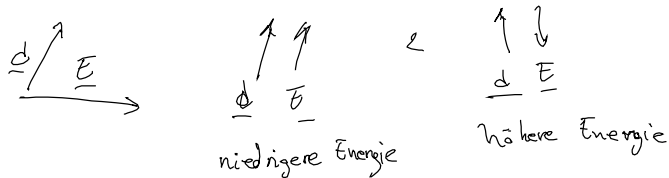 d E
d E < d E
niedrigere Energie
höhere Energie